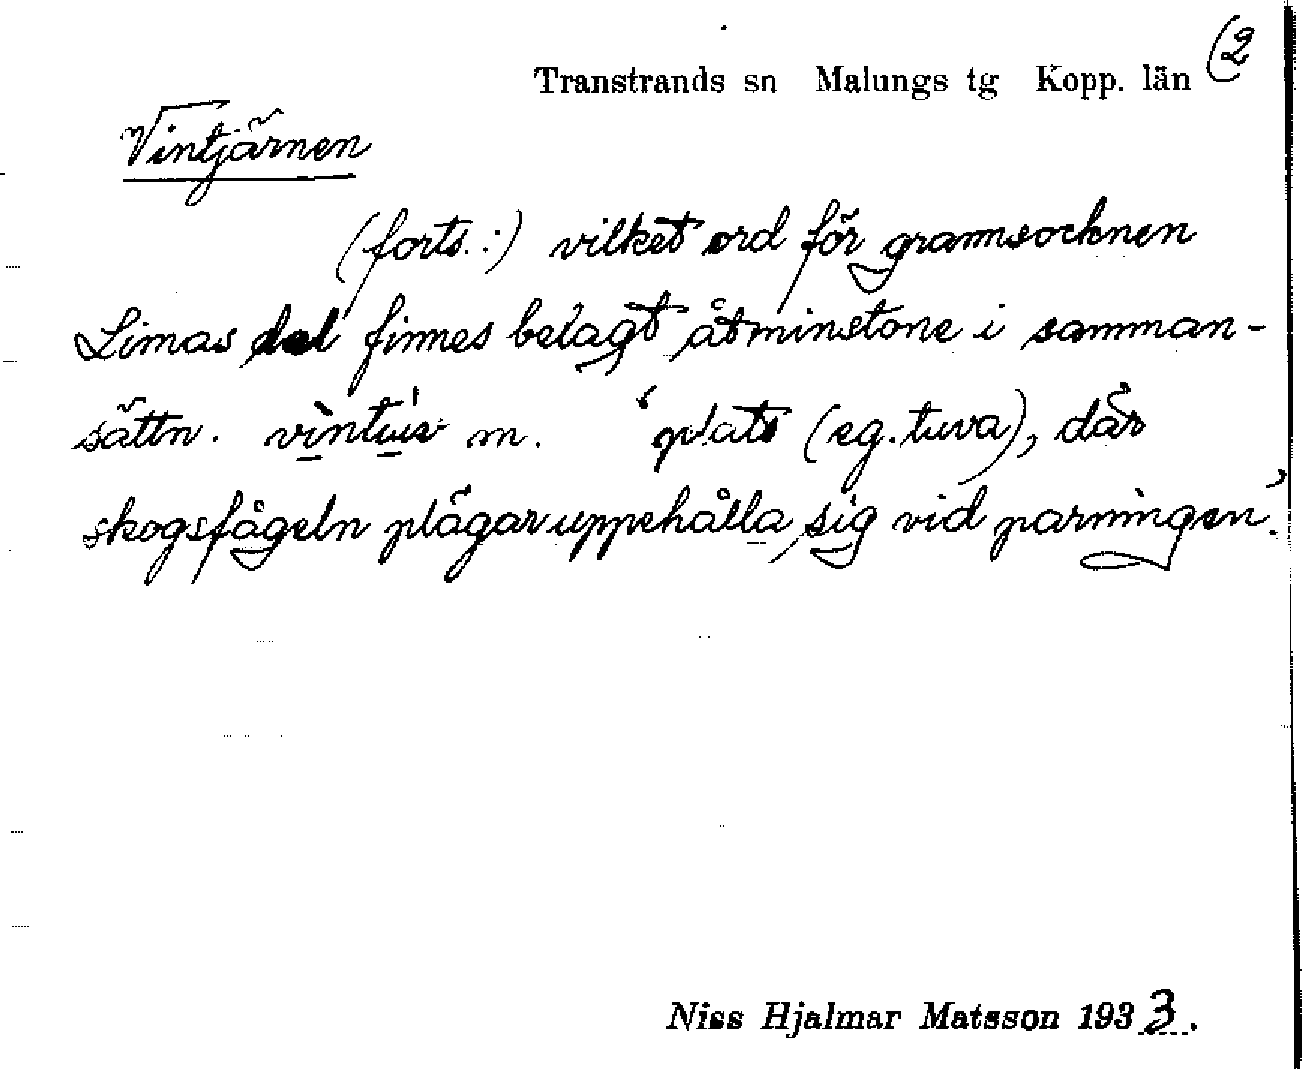 (2
Transtrands sn Malungs tg Kopp. län
Vintjärnen
(forts.:) vilket ord för grannsocknen
Limas del finnes belagt åtminstone i samman-
sättn. m. ‘plats (eg. tuva), där
skogsfågeln plägar uppehålla sig vid parningen’.
Niss Hjalmar Matsson 1933.